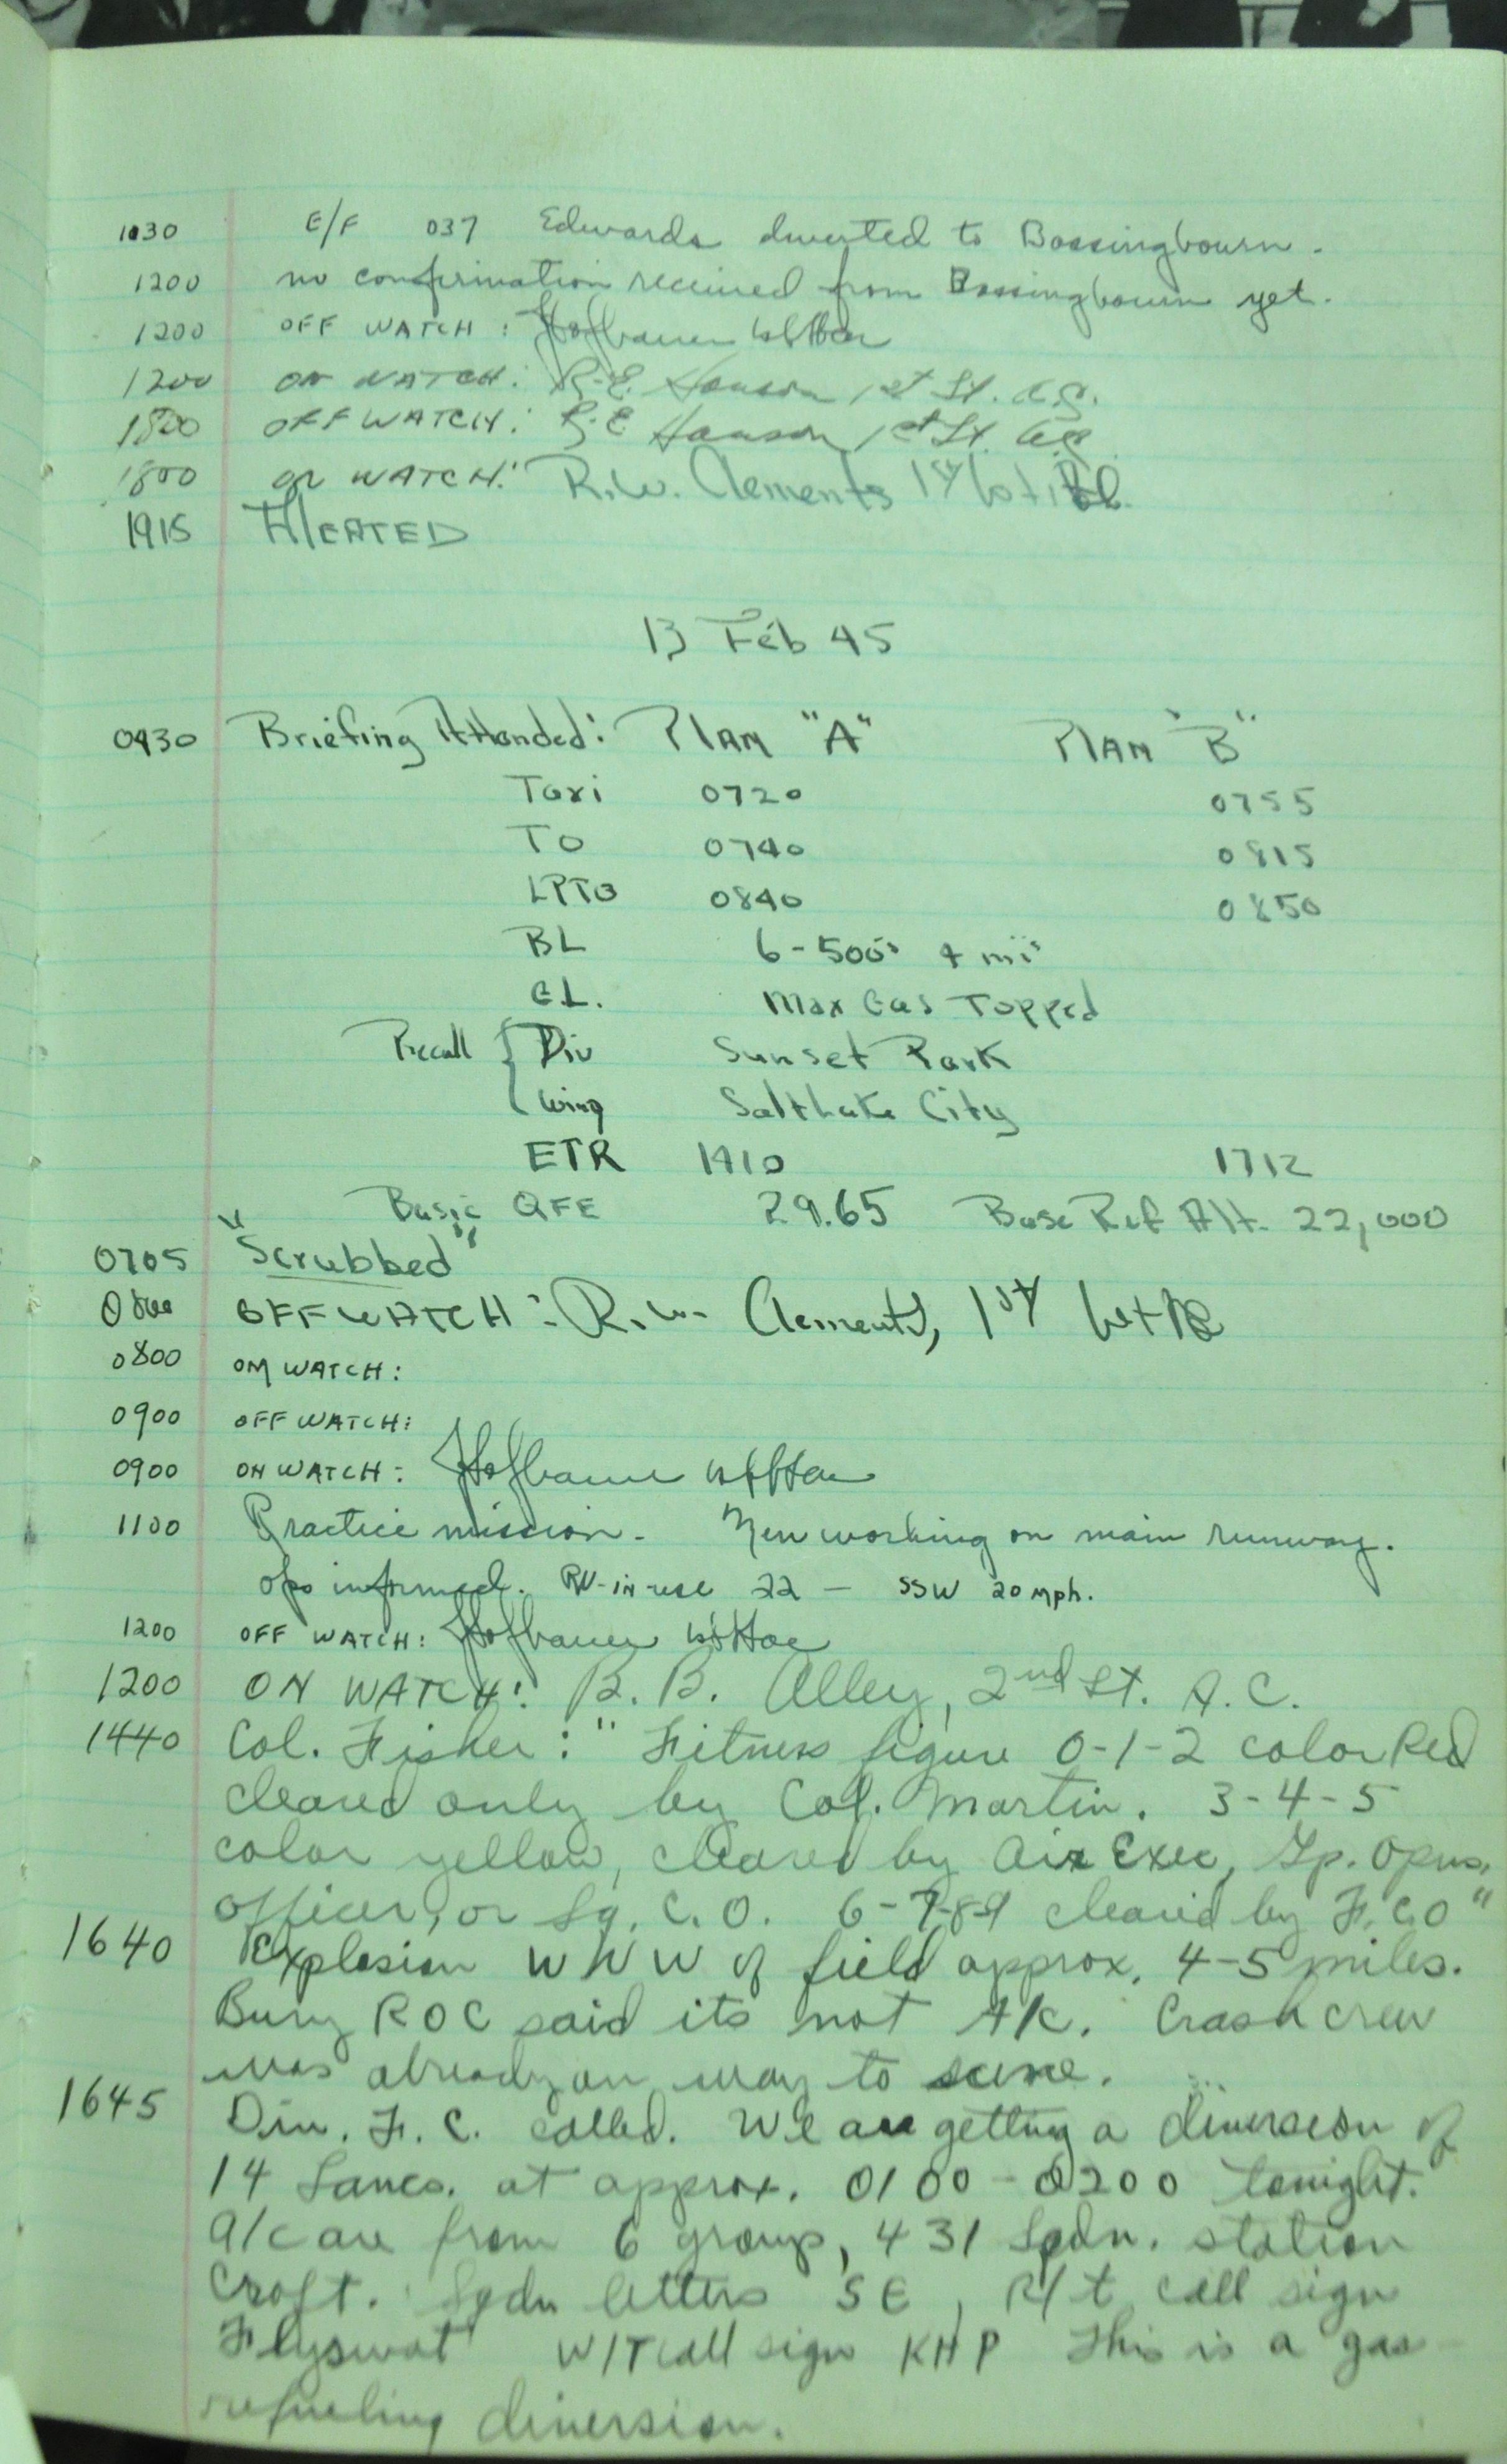 1030 E/F 037 Edwards diverted to Bassingbourn.
1200 no confirmation received from Bassingbourn yet.
1200 OFF WATCH: Hofbauer
1200 ON WATCH: R.E. Hanson 1st Lt. A.C.
1800 OFF WATCH: R.E Hanson 1st Lt. AC
1800 ON WATCH: R.W. Clements 1st Lt
1915 ALERTED
13 Feb 45
0430 Briefing Attended: Plan "A" Plan "B"
Taxi 0720 0755
TO 0740 0815
LPTO 0840 0850
BL 6-500's 4 mi's
G.L. Max Gas Topped
Recall { Div Sunset Park
Wing Salt Lake City
ETR 1410 1712
Basic QFE 29.65 Base Ref Alt. 22,000
0705 "Scrubbed"
0800 OFF WATCH: R.W. Clements, 1st Lt
0800 ON WATCH:
0900 OFF WATCH:
0900 ON WATCH: Hofbauer
1100 Practice mission. Men working on main runway.
Ops informed. RW-IN-use 22 - SSW 20 mph.
1200 OFF WATCH: Hofbauer
1200 ON WATCH: B. B. Alley, 2nd Lt. A.C.
1440 Col. Fisher: "Fitness figure 0-1-2 color Red
cleared only by Col. Martin. 3-4-5
color yellow, cleared by Air Exec, Gp. Opns.
officer, or Sq. C.O. 6-7-8-9 cleared by F.C.O"
1640 Explosion WNW of field approx. 4-5 miles.
Bury ROC said its not A/C. Crash crew
was already on way to scene.
1645 Div. F. C. called. We are getting a diversion of
14 Lancs. at approx. 0100-0200 tonight.
A/C are from 6 group, 431 Sqdn. station
Croft. Sqdn letters SE, R/t call sign
Flyswat W/T call sign KHP This is a gas
refueling diversion.